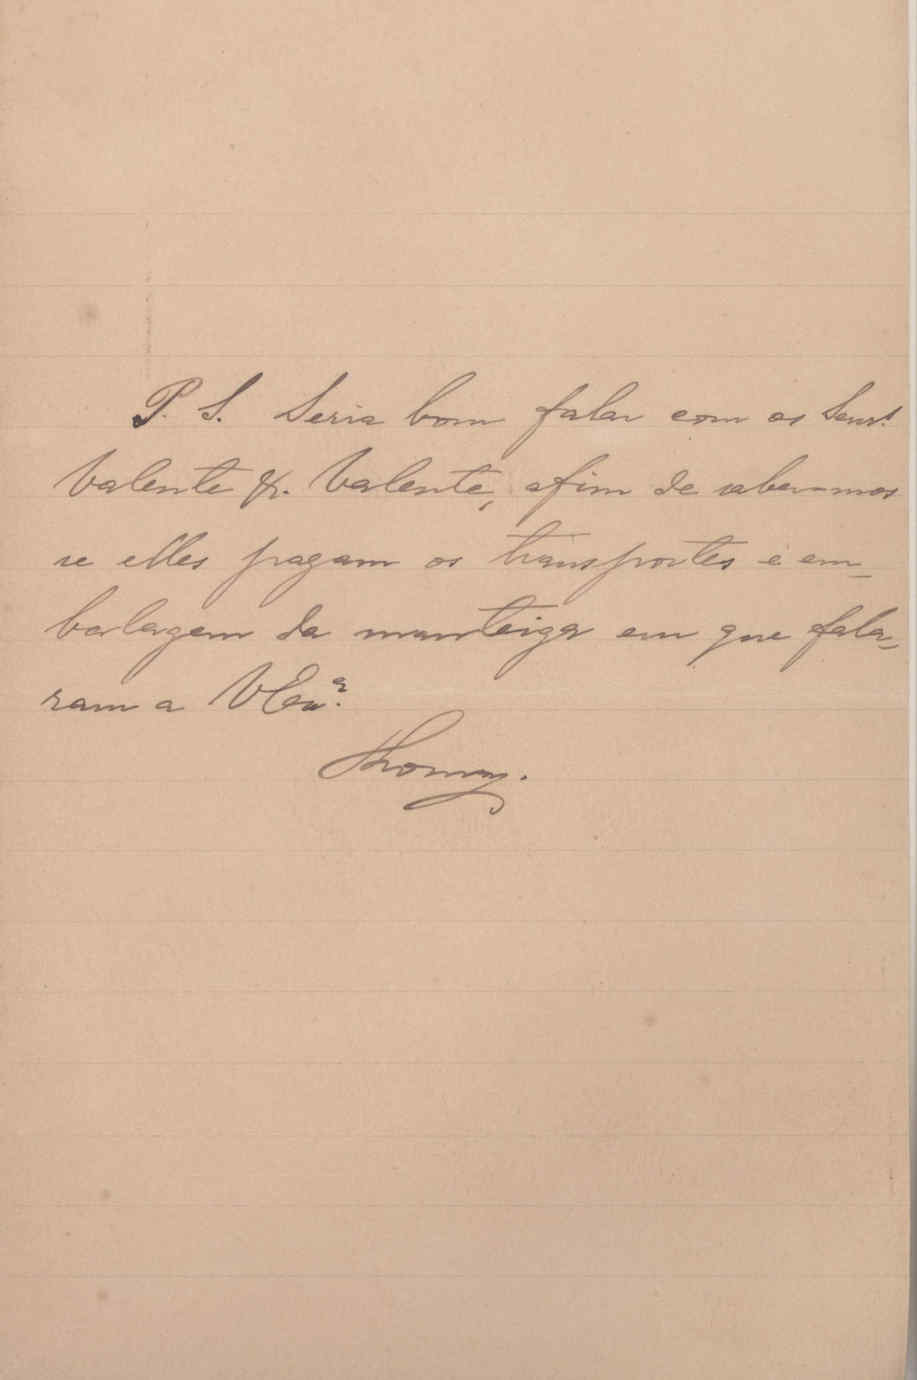 P. S. Seria bom falar com os Senrs.
Valente &. Valente, afim de sabermos
se elles pagam os transportes e em-
balagem da manteiga em que fala-
ram a V Exª.
Thomaz.